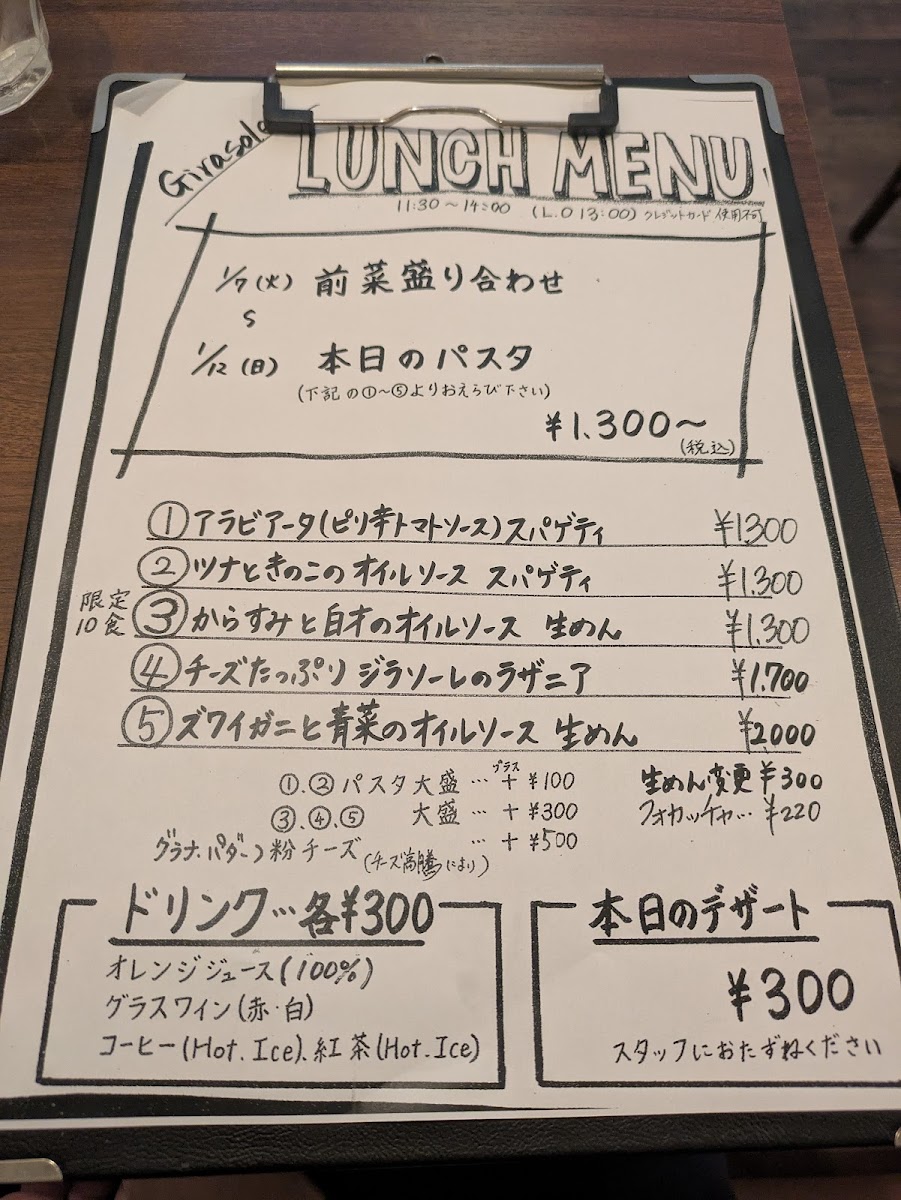 Girasole
LUNCH MENU
11:30〜14:00 (L.O 13:00) クレジットカード使用不可
1/7(火) 前菜盛り合わせ
1/12(日) 本日のパスタ
(下記の①〜⑤よりおえらび下さい)
¥1.300〜
(税込)
①アラビアータ(ピリ辛トマトソース)スパゲティ ¥1300
②ツナときのこのオイルソース スパゲティ ¥1.300
限定
10食
③からすみと白才のオイルソース 生めん ¥1.300
④チーズたっぷり ジラソーレのラザニア ¥1.700
⑤ズワイガニと青菜のオイルソース 生めん ¥2000
プラス
①.②パスタ大盛…+¥100
③.④.⑤ 大盛…+¥300
グラナパダーノ粉チーズ …+¥500
(チーズ高騰により)
生めん変更¥300
フォカッチャ…¥220
ドリンク…各¥300
オレンジジュース(100%)
グラスワイン(赤・白)
コーヒー(Hot.Ice).紅茶(Hot.Ice)
本日のデザート
¥300
スタッフにおたずねください